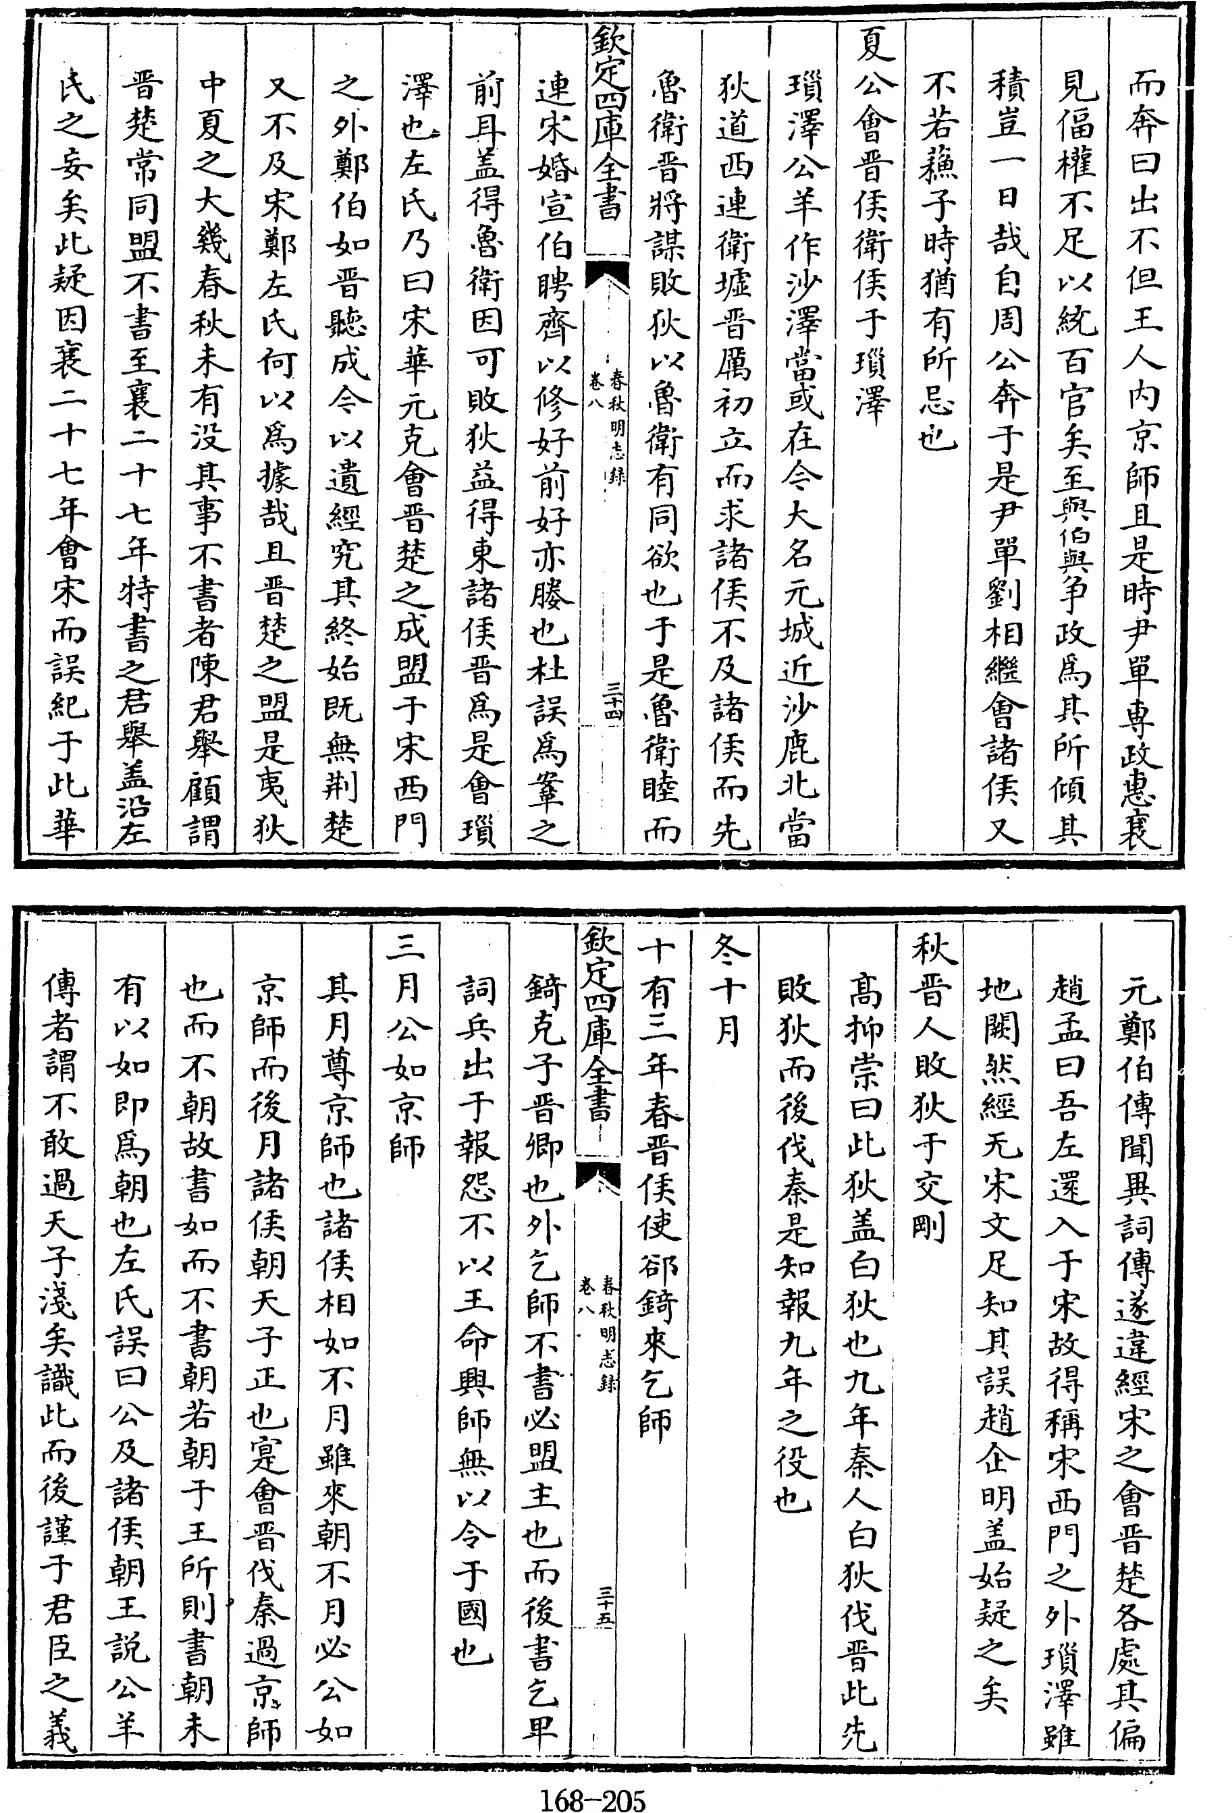 而奔曰出不但王人内京師且是時尹單專政惠襄
見偪權不足以統百官矣至與伯輿爭政爲其所傾其
積豈一日哉自周公奔于是尹單劉相繼會諸侯又
不若蘓子時猶有所忌也
夏公會晋侯衛侯于瑣澤
瑣澤公羊作沙澤當或在今大名元城近沙鹿北當
狄道西連衛墟晋厲初立而求諸侯不及諸侯而先
魯衛晋將謀敗狄以魯衛有同欲也于是魯衛睦而
欽定四庫全書
春秋明志録
卷八
三十四
連宋婚宣伯聘齊以修好前好亦媵也杜誤爲鞌之
前耳盖得魯衛因可敗狄益得東諸侯晋爲是會瑣
澤也左氏乃曰宋華元克會晋楚之成盟于宋西門
之外鄭伯如晋聽成今以遺經究其終始既無荆楚
又不及宋鄭左氏何以爲據哉且晋楚之盟是夷狄
中夏之大幾春秋未有没其事不書者陳君舉顧謂
晋楚常同盟不書至襄二十七年特書之君舉盖沿左
氏之妄矣此疑因襄二十七年會宋而誤紀于此華
元鄭伯傳聞異詞傳遂違經宋之會晋楚各處其偏
趙孟曰吾左還入于宋故得稱宋西門之外瑣澤雖
地闕然經无宋文足知其誤趙企明盖始疑之矣
秋晋人敗狄于交剛
髙抑崇曰此狄盖白狄也九年秦人白狄伐晋此先
敗狄而後伐秦是知報九年之役也
冬十月
十有三年春晋侯使郤錡來乞師
欽定四庫全書
春秋明志録
卷八
三十五
錡克子晋卿也外乞師不書必盟主也而後書乞卑
詞兵出于報怨不以王命興師無以令于國也
三月公如京師
其月尊京師也諸侯相如不月雖來朝不月必公如
京師而後月諸侯朝天子正也寔會晋伐秦過京師
也而不朝故書如而不書朝若朝于王所則書朝未
有以如即爲朝也左氏誤曰公及諸侯朝王説公羊
傳者謂不敢過天子淺矣識此而後謹于君臣之義
168-205